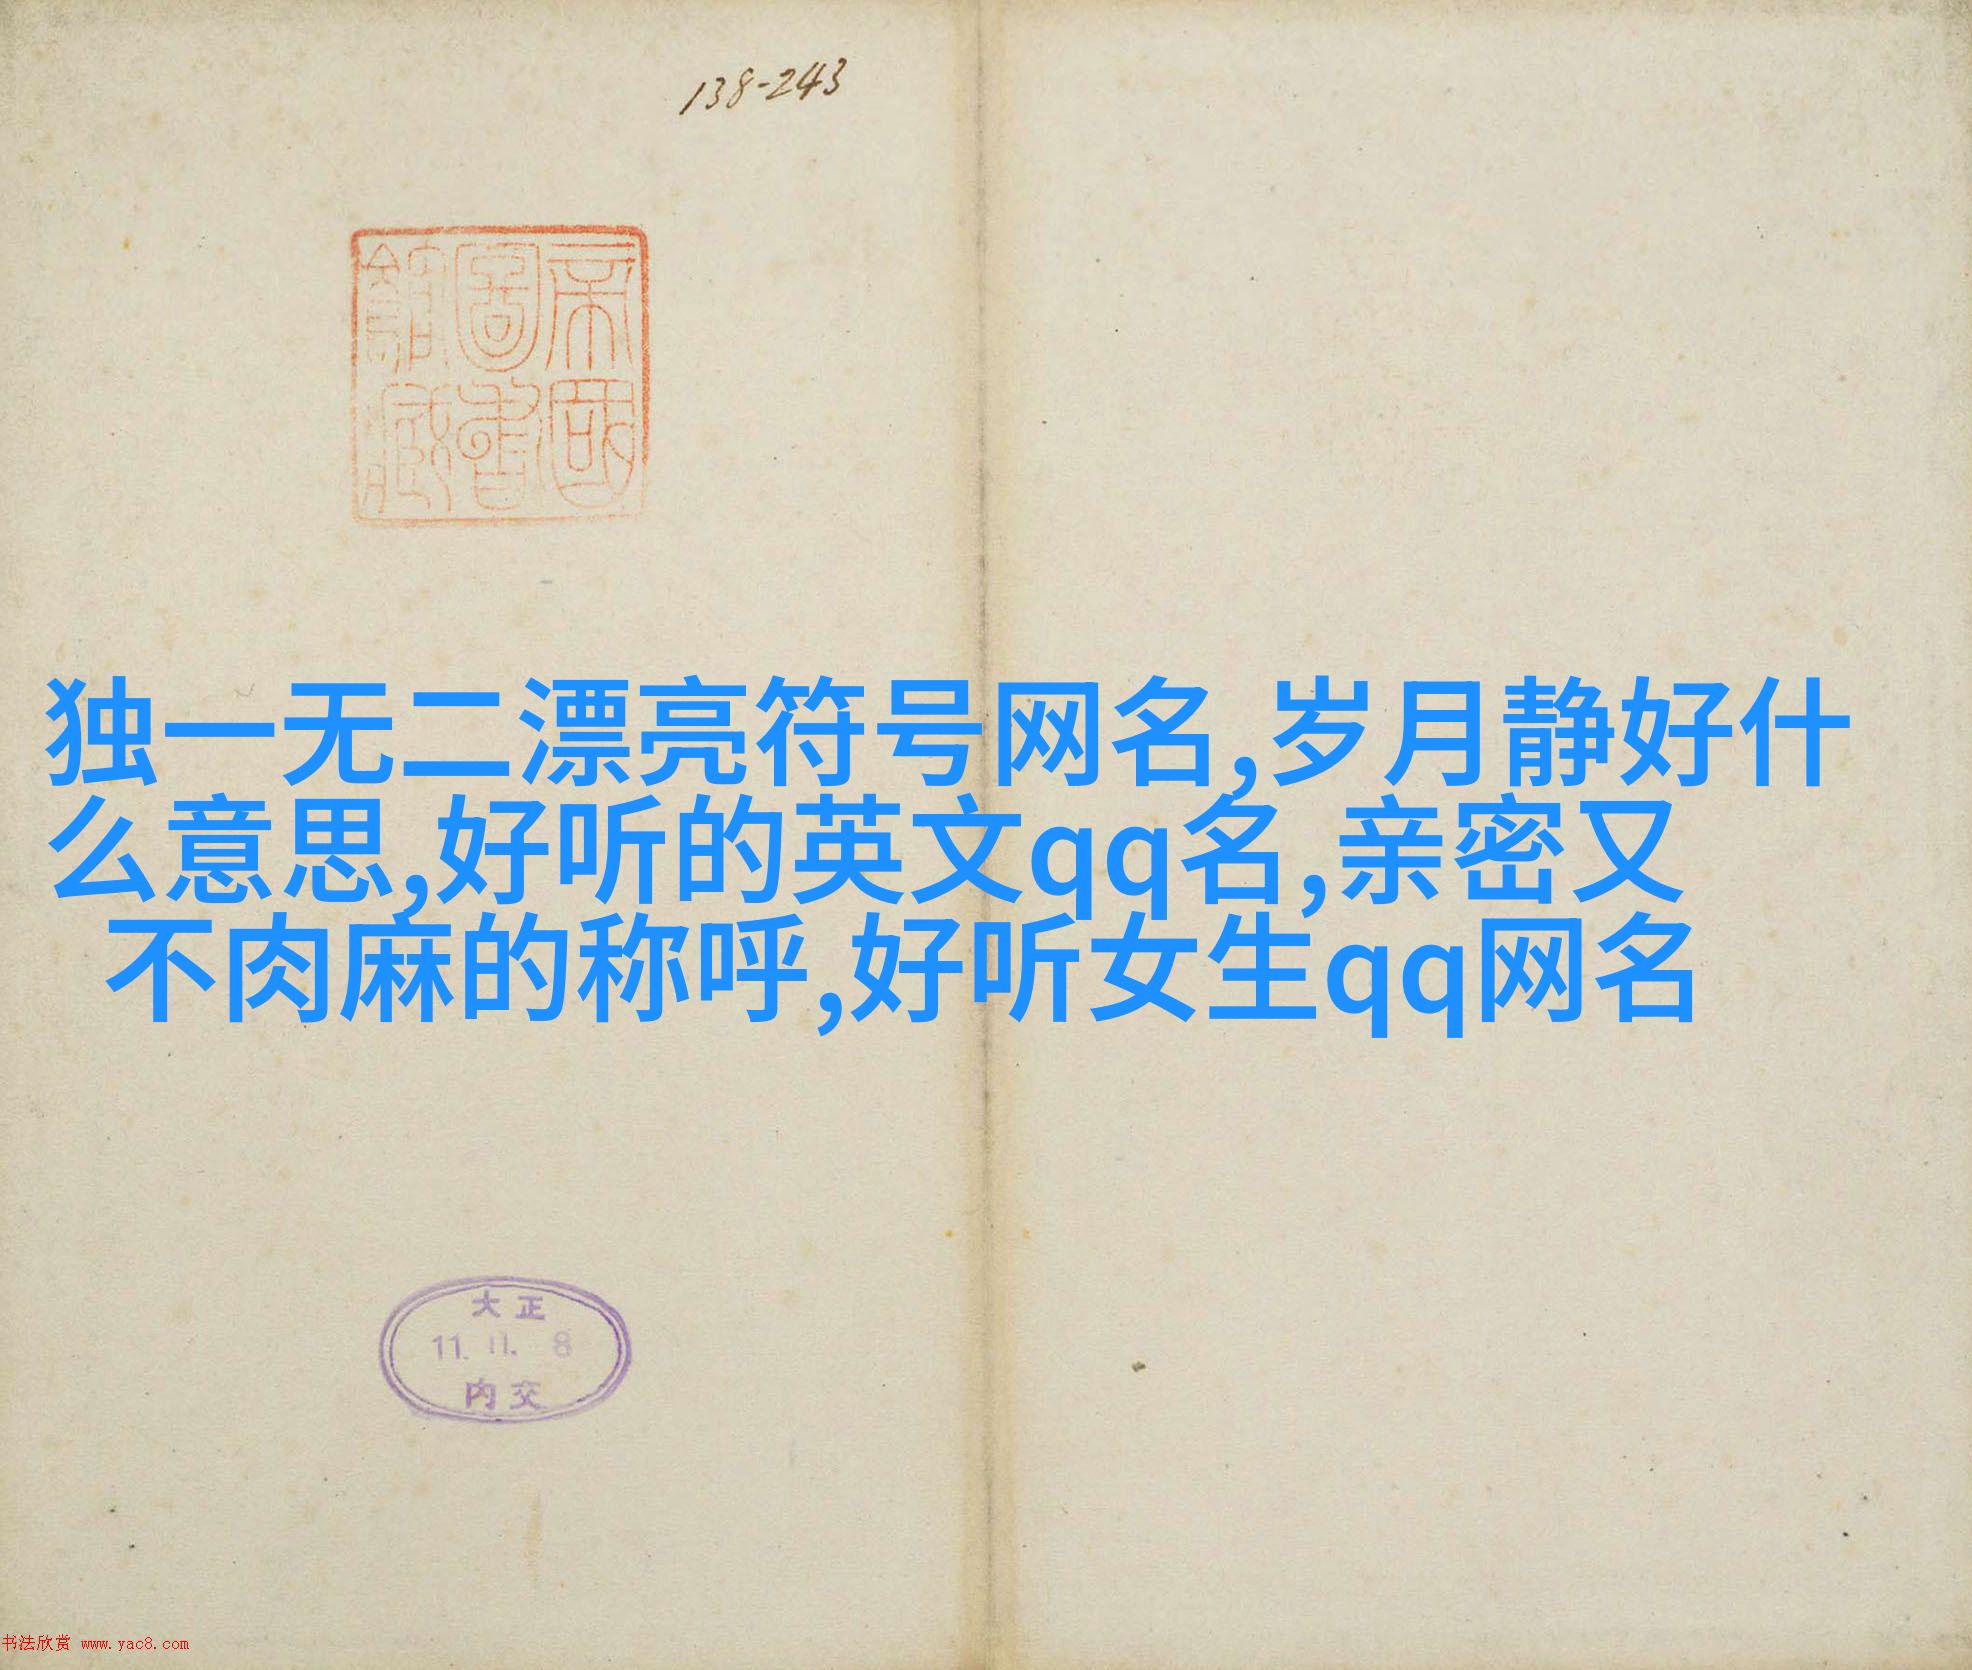 138-243
帝国
圖書
館藏
独一无二漂亮符号网名,岁月静好什
么意思,好听的英文qq名,亲密又
不肉麻的称呼,好听女生qq网名
大正
11. 11. 8
内交
书法欣赏 www.yac8.com